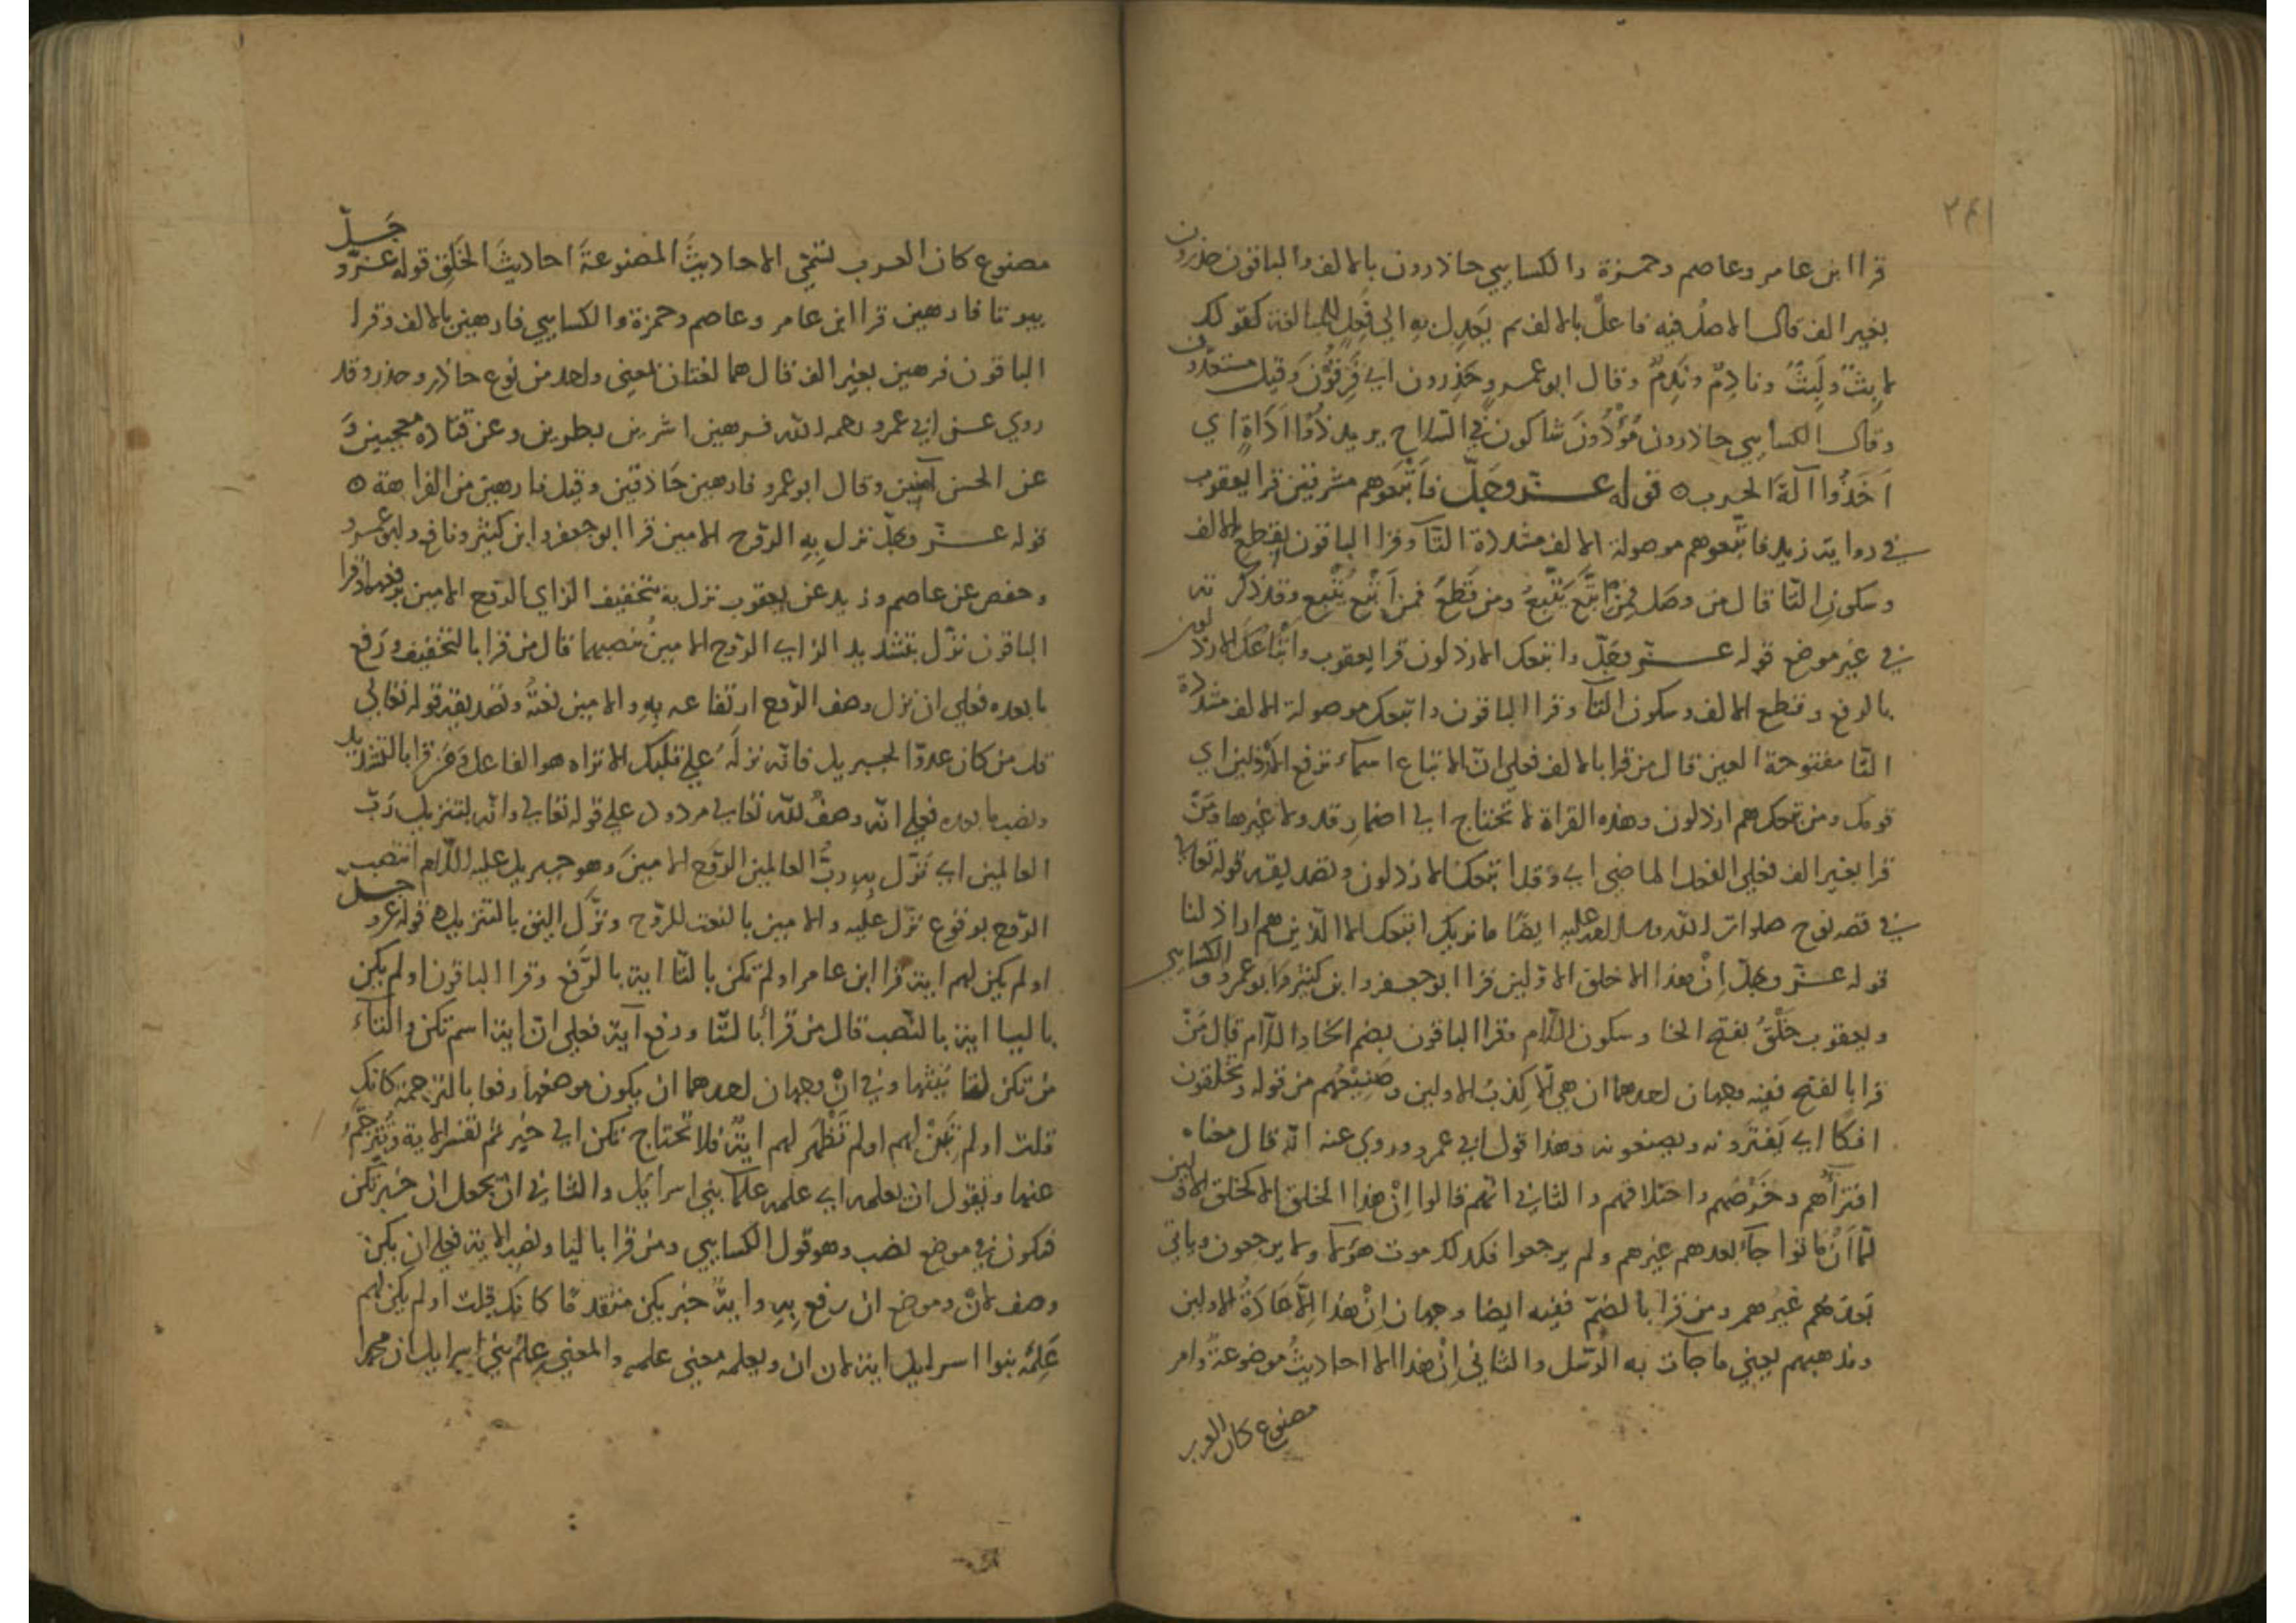 ٢٤١
قرا ابن عامر وعاصم وحمزة والكسايي حاذرون بالالف والباقون حذرون
بغير الف قال الاصلُ فيه فاعلٌ بالالف ثم يَعدِل بهِ الى فَعِلٍ للمبالغة كقولك
لابِثٌ ولَبِثٌ ونادِمٌ ونَدِمٌ وقال ابو عمرٍو حَذِرون اي فَرِقُونَ وقيل مستعدّون
وقال الكسايي حاذرون مُؤْدُونَ شاكون في السّلاح يريد ذُوُا اَدَاةٍ اي
اَخَذُوا آلَةَ الحرب ٥ قوله عـــزّ وجَلّ فاَتْبَعوهم مشرقين قرا يعقوب
في رواية زيد فاتّبعوهم موصولة الالف مشدّدة التّآ وقرا الباقون بقطع الالف
وسكون التّا قال من وصَل فمن اتَّبَع يَتَّبِعُ ومن قَطَعَ فمن اَتْبَع يُتْبِع وقد ذكرته
في غير موضع قوله عـــزّ وجَلّ واتبعك الارذلون قرا يعقوب واَتْبَاعُكَ الارذلون
بالرفع وقطع الالف وسكون التّآ وقرا الباقون واتبعك موصولة الالف مشدّدة
التّا مفتوحة العين قال من قرا بالالف فعلى انّ الاتباع اسمآء ترفع الارذلين اي
قومك ومن تبعك هم ارذلون وهذه القراة لا تحتاج الى اضمار قد ولا غيرها ومَنْ
قرا بغير الف فعلى الفعل الماضي اي وقد اتبعك الارذلون وتصديقه قوله تعالى
في قصه نوح صلوات الله وسلامه عليه ايضًا ما نريك اتبعك الا الّذين هم اراذلنا
قوله عـــزّ وجَلّ اِنْ هذا الا خلق الاوّلين قرا ابو جعفر وابن كثير وابو عمرو والكسايي
ويعقوب خَلْقُ بفتح الخا وسكون اللّام وقرا الباقون بضم الخا واللّام قال مَنْ
قرا بالفتح ففيه وجهان احدهما ان هي اِلّا كذبُ الاولين وصَنِيْعُهم من قوله وتخلقون
افكًا اي يَفترَونه ويصنعونه وهذا قول ابي عمرو وروي عنه انّه قال معناه
افترآؤهم وخَرْصُهم واختلاقهم والثاني انّهم قالوا اِنْ هذا الخلق الا كخلق الاوّلين
لمّا اَنْ ماتوا جآء بعدهم غيرهم ولم يرجعوا فكذلك موت هوَلآء ولا يرجعون وياتي
بَعدَهُم غيرُهم ومن قرا بالضمّ ففيه ايضا وجهان اِنْ هذا اِلّا عَادَةُ الاولين
ومذهبهم يعني ما جآت به الرّسُل والثاني اِنْ هذا الا احاديثُ موضوعةٌ وامر
مصنوع كان العرب
مصنوع كان العرب تسَمّي الاحاديثَ المصنوعةَ احاديثَ الخَلقِ قوله عـــزّ وجَــلّ
بيوتا فارهين قرا ابن عامر وعاصم وحمزة والكسايي فارهين بالالف وقرا
الباقون فرهين بغير الف قال هما لغتان بمعنى واحد من نوع حاذر وحذر وقد
روي عـــن ابي عمرو رحمه الله فـرهين اشرين بطرين وعن قتاده معجبين وَ
عن الحسن آمنين وقال ابو عمرو فارهين حَاذقين وقيل فارهين من الفراهة ٥
قوله عـــزّ وجلّ نزل بِهِ الرّوح الامين قرا ابو جعفر وابن كثير ونافع وابو عمرو
وحفص عن عاصم وزيد عن يعقوب نزل به بتخفيف الزاي الرّوح الامين برفعهما وقرا
الباقون نزّل بتشديد الزاي الرّوحَ الامينَ بنصبهما قال من قرا بالتخفيف ورَفع
ما بعده فعلى ان نزل وصف الرّوح ارتفاعه بِهِ والامين نعتُهُ وتصديقه قوله تعالى
قل من كان عدوّا لجبريل فانّه نزلَهُ على قلبك الا تراه هو الفاعل وَمَن قرا بالتشديد
ونصب ما بعده فعلى انّه وصفُ للّه تعالى مردود على قوله تعالى وانّه لتنزيل رَبّ
العالمين اي نَزّل بِهِ ربُّ العالمين الرّوحَ الامينَ وهو جبريل عليه السّلام انتصب
الرّوح بوقوع نزّل عليه والامين بالنعت للرّوح ونزّل اليق بالتنزيل ٥ قوله عزّ وجــل
اولم يكن لهم اية قرا ابن عامر اولم تكن بالتّا اية بالرّفع وقرا الباقون اولم يكن
باليا اية بالنّصب قال من قرأ بالتّا ورفع آية فعلى انّ اية اسم تكن والتآء
من تكن لتانيثها وفي انْ وجهان احدهما ان يكون موضعها رفعا بالترجمة كانك
قلت اولم تكنْ لهم اولم تَظْهَر لهم ايةٌ فلا تحتاج تكن الى خبر ثم تفسر الاية وتُترجَمُ
عنها وتقول ان يعلمه اي علمه علمآء بني اسرآئل والثاني ان يجعل ان خبر تكن
فتكون في موضع نصب وهو قول الكسايي ومن قرا باليا ونصب الاية فعلى ان يكن
وصف لانْ وموضع ان رفع بِهِ وايةً خبر يكن متقدمًا كانك قلت اولم يكن لهم
عَلِمَهُ بنوا اسرايل اية لان ان ويعلمه معنى علمه والمعنى عِلمُ بني اسرايل ان محمدا